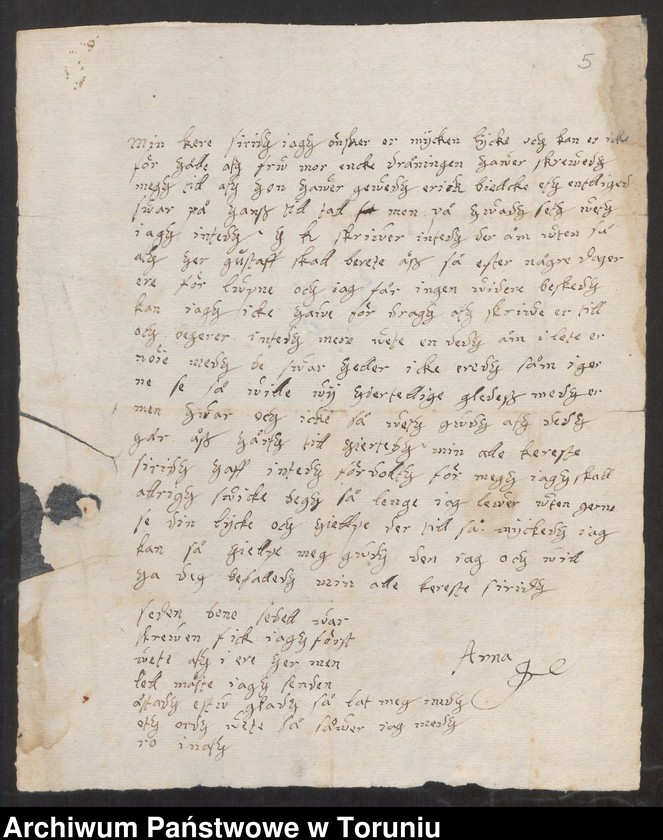 5
Min kere siridh iagh önsker er mycken lycke och kan er icke
för hålle ath frw mor encke dråningen hawer skrewedh
megh till ath hon hawer gewedh erick bielcke eth entlligen
swar på hans till tall men på hwadh seth weth
iagh intedh skriwer intedh der åm wten så
ath her gustaff skall berete åss så efter någre dager
ere för lupne och iag får ingen widere beskedh
kan iagh icke haive för dragh ath skriwe er till
och begerer intedh mer wete en dedh åm i lete er
nöie medh be swar heller icke eredh såm i ger
ne se så wille wij hiertellige gledess medh er
men hwar och icke så weth gudh ath dedh
går åss hårth till hiertedh min alle kereste
siridh haff intedh fördolth för megh iagh skall
alrigh swicke degh så lenge iag lewer wten gerne
se din lycke och hielpe der till så myckedh iag
kan så hielpe meg gudh den iag och will
ha deg befalledh min alle kereste siridh
seden dene sedell war
skrewen fick iagh först
wete ath i ere her men
lell måste iagh senden
åstadh estw gladh så lat meg medh
eth ordh wete så såwer iag medh
ro i nath
Anna
Archiwum Państwowe w Toruniu